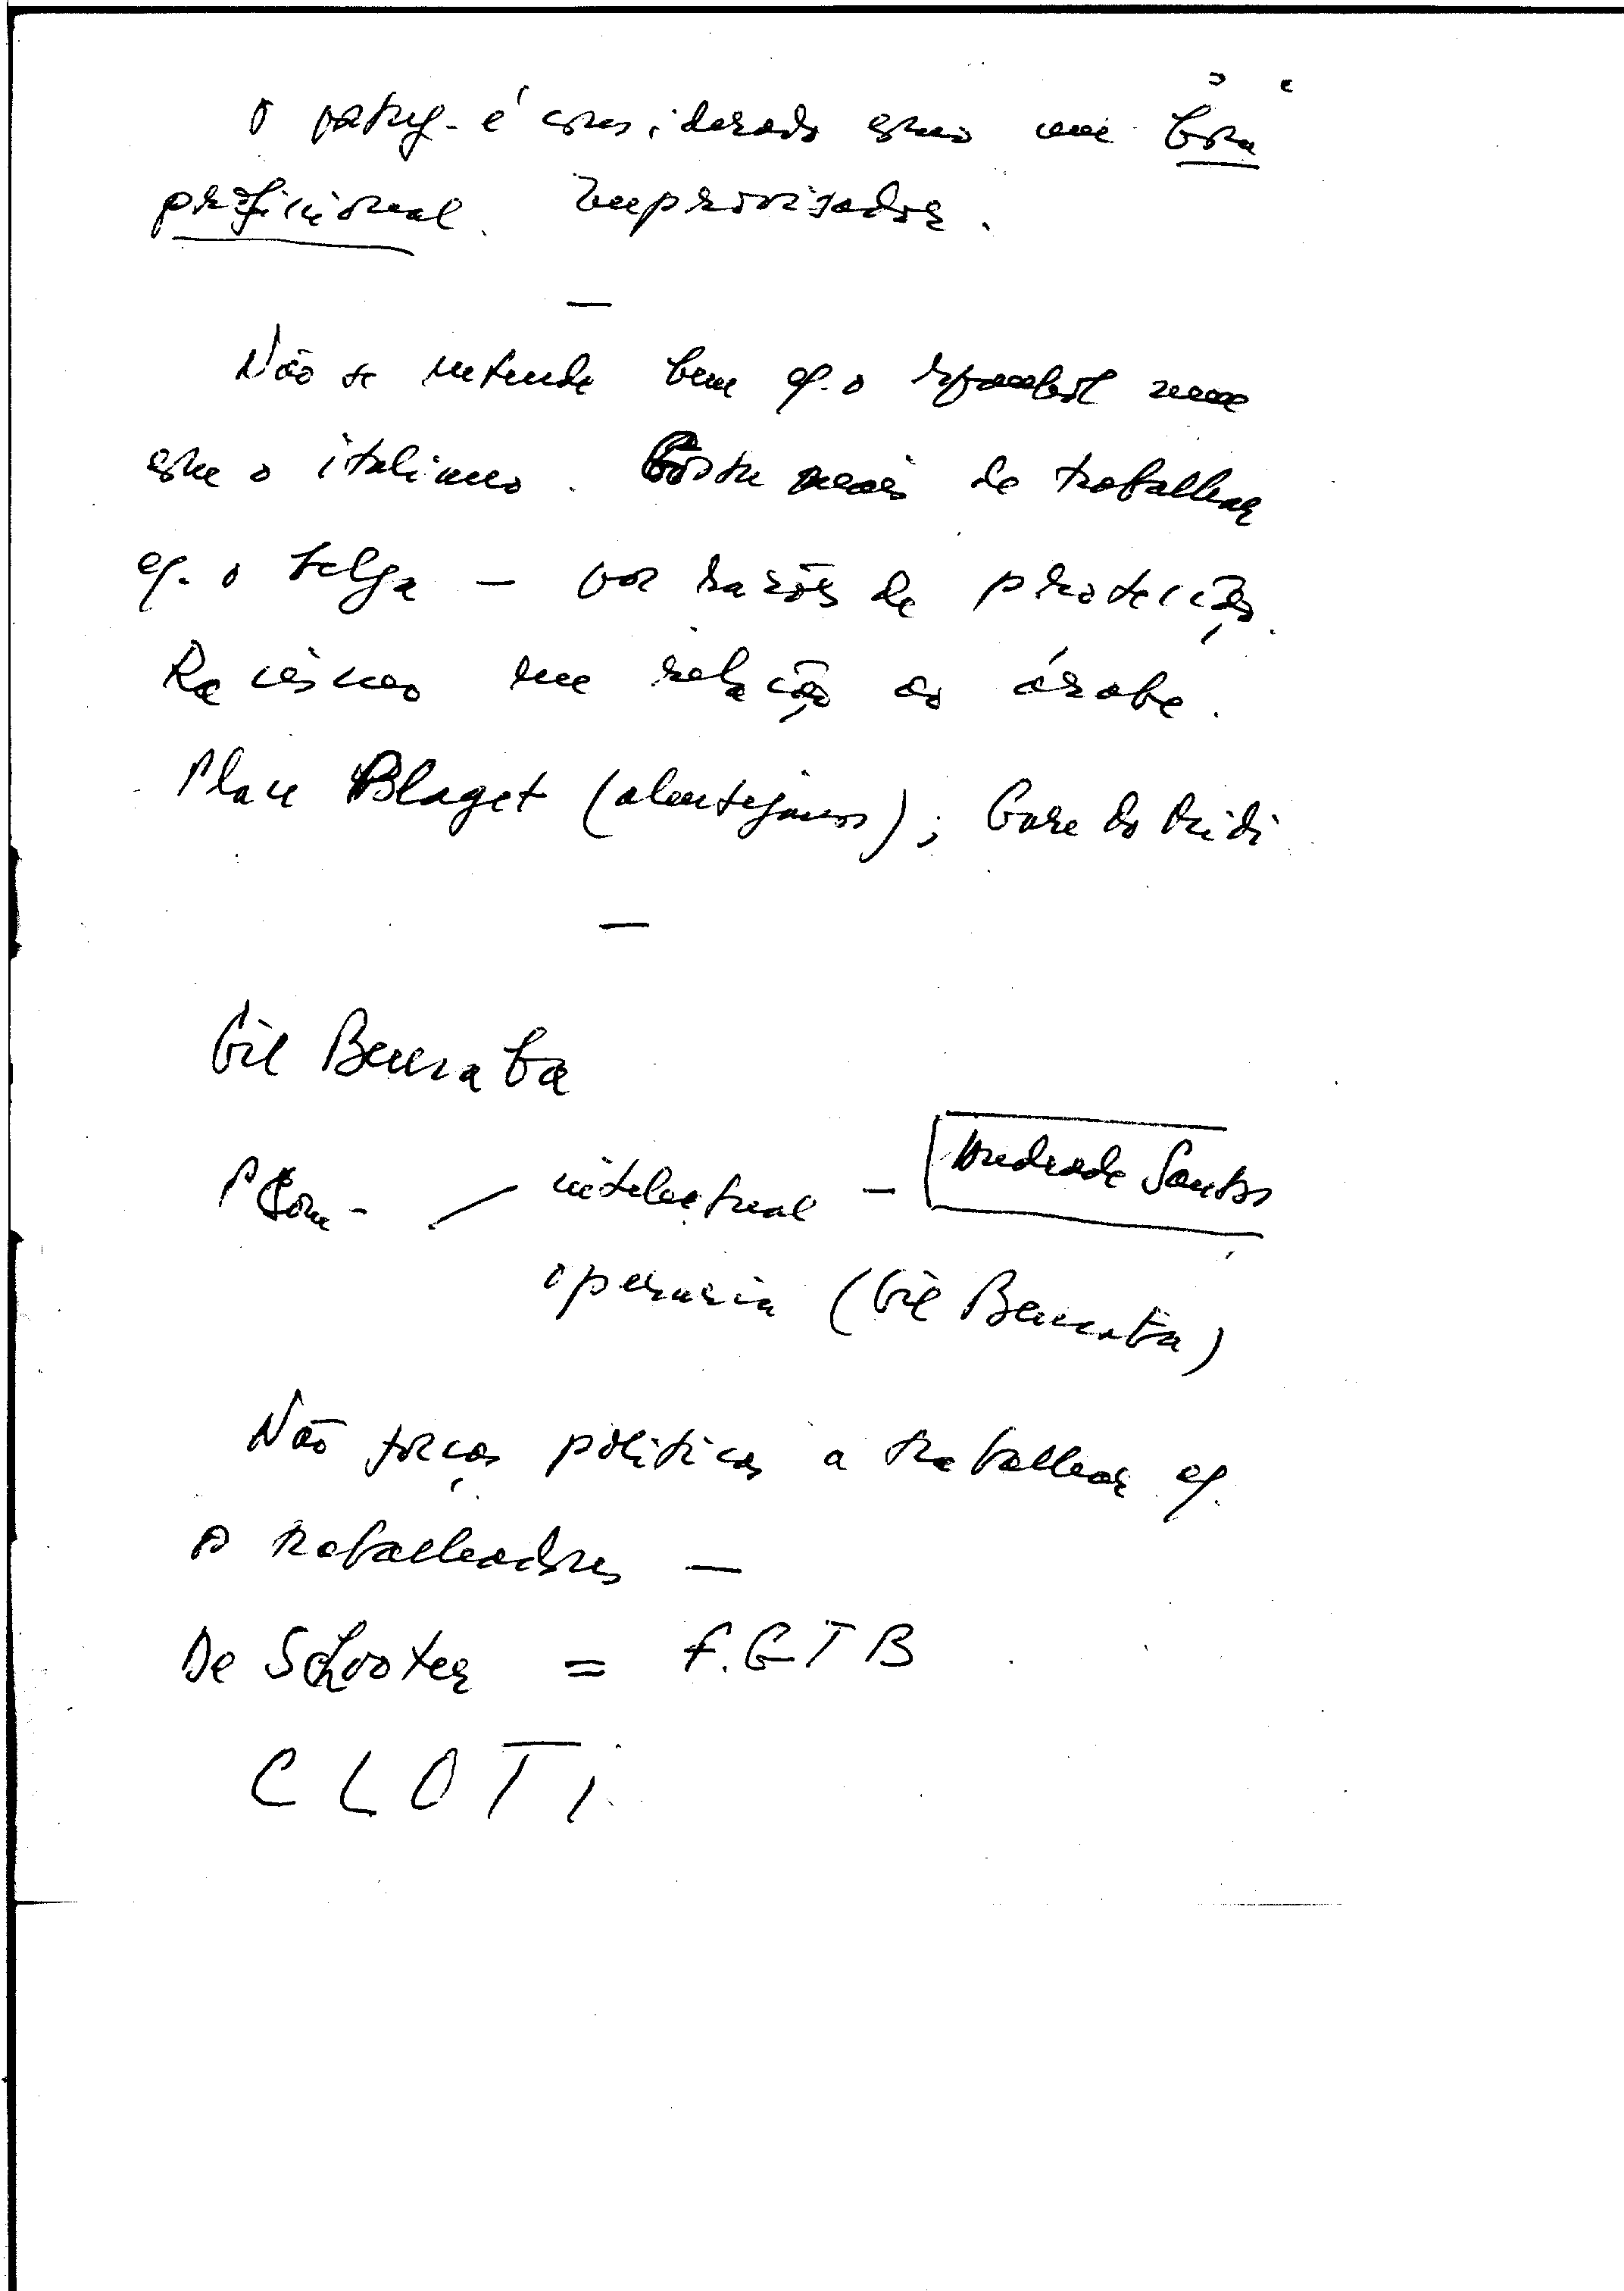 O portg. é considerado como um bom
proficional. Improvisador.
—
Não se entende bem c/. o espanhol nem
com o italiano. Gosta mais de trabalhar
c/. o belga — por razões de protecção.
Racismo em relação ao árabe.
Place Blaget (alentejanos); Gare do Midi
—
Gil
PCom - intelectual - Andrade Santos
operaria (Gil
Não forças politicas a trabalhar c/.
os trabalhadores —
De Schooter = F.G.T B
C L O T i